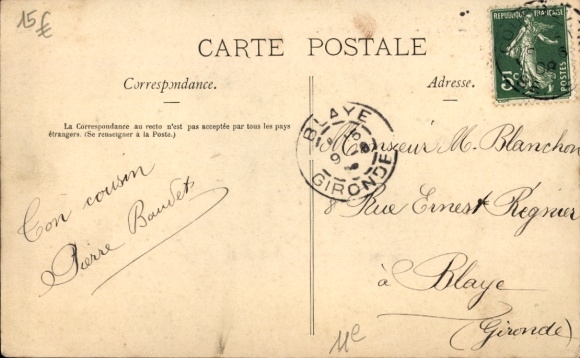 15€
RÉPUBLIQUE FRANÇAISE
5c
POSTES
CARTE POSTALE
Correspondance.
Adresse.
La Correspondance au recto n'est pas acceptée par tous les pays
étrangers. (Se renseigner à la Poste.)
BLAYE
GIRONDE
Ton cousin
Pierre Baudet
Monsieur M. Blanchon
8 Rue Ernest Régnier
à Blaye
(Gironde)